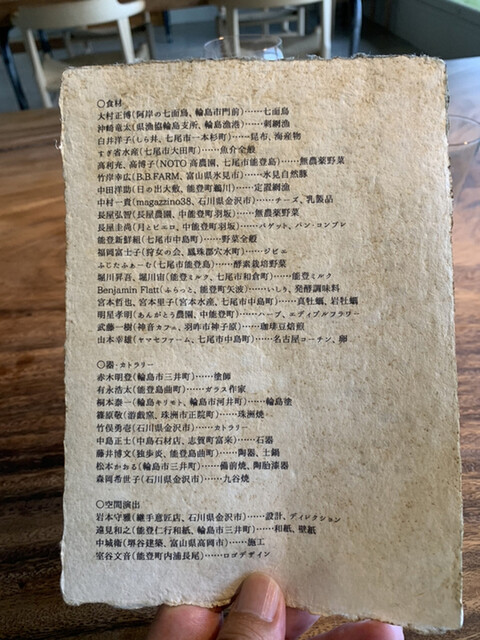 ○食材
大村正博(阿岸の七面鳥、輪島市門前)……七面鳥
沖崎竜太(県漁協輪島支所、輪島漁港)……刺網漁
白井洋子(しら井、七尾市一本杉町)……昆布、海産物
すぎ省水産(七尾市大田町)……魚介全般
高利充、高博子(NOTO 高農園、七尾市能登島)……無農薬野菜
竹岸幸広(B.B.FARM、富山県氷見市)……氷見自然豚
中田洋助(日の出大敷、能登町鵜川)……定置網漁
中村一貴(magazzino38、石川県金沢市)……チーズ、乳製品
長屋弘智(長屋農園、中能登町羽坂)……無農薬野菜
長屋圭尚(月とピエロ、中能登町羽坂)……バゲット、パン・コンプレ
能登新鮮組(七尾市中島町)……野菜全般
福岡富士子(狩女の会、鳳珠郡穴水町)……ジビエ
ふじたふぁーむ(七尾市能登島)……酵素栽培野菜
堀川昇吾、堀川宙(能登ミルク、七尾市和倉町)……能登ミルク
Benjamin Flatt(ふらっと、能登町矢波)……いしり、発酵調味料
宮本哲也、宮本里子(宮本水産、七尾市中島町)……真牡蠣、岩牡蠣
明星孝明(あんがとう農園、中能登町)……ハーブ、エディブルフラワー
武藤一樹(神音カフェ、羽咋市神子原)……珈琲豆焙煎
山本幸雄(ヤマモファーム、七尾市中島町)……名古屋コーチン、卵
○器・カトラリー
赤木明登(輪島市三井町)……塗師
有永浩太(能登島曲町)……ガラス作家
桐本泰一(輪島キリモト、輪島市河井町)……輪島塗
篠原敬(游戯窯、珠洲市正院町)……珠洲焼
竹俣勇壱(石川県金沢市)……カトラリー
中島正士(中島石材店、志賀町富来)……石器
藤井博文(独歩炎、能登島曲町)……陶器、土鍋
松本かおる(輪島市三井町)……備前焼、陶胎漆器
森岡希世子(石川県金沢市)……九谷焼
○空間演出
岩本守雅(継手意匠店、石川県金沢市)……設計、ディレクション
遠見和之(能登仁行和紙、輪島市三井町)……和紙、壁紙
中城衛(堺谷建築、富山県高岡市)……施工
室谷文音(能登町内浦長尾)……ロゴデザイン